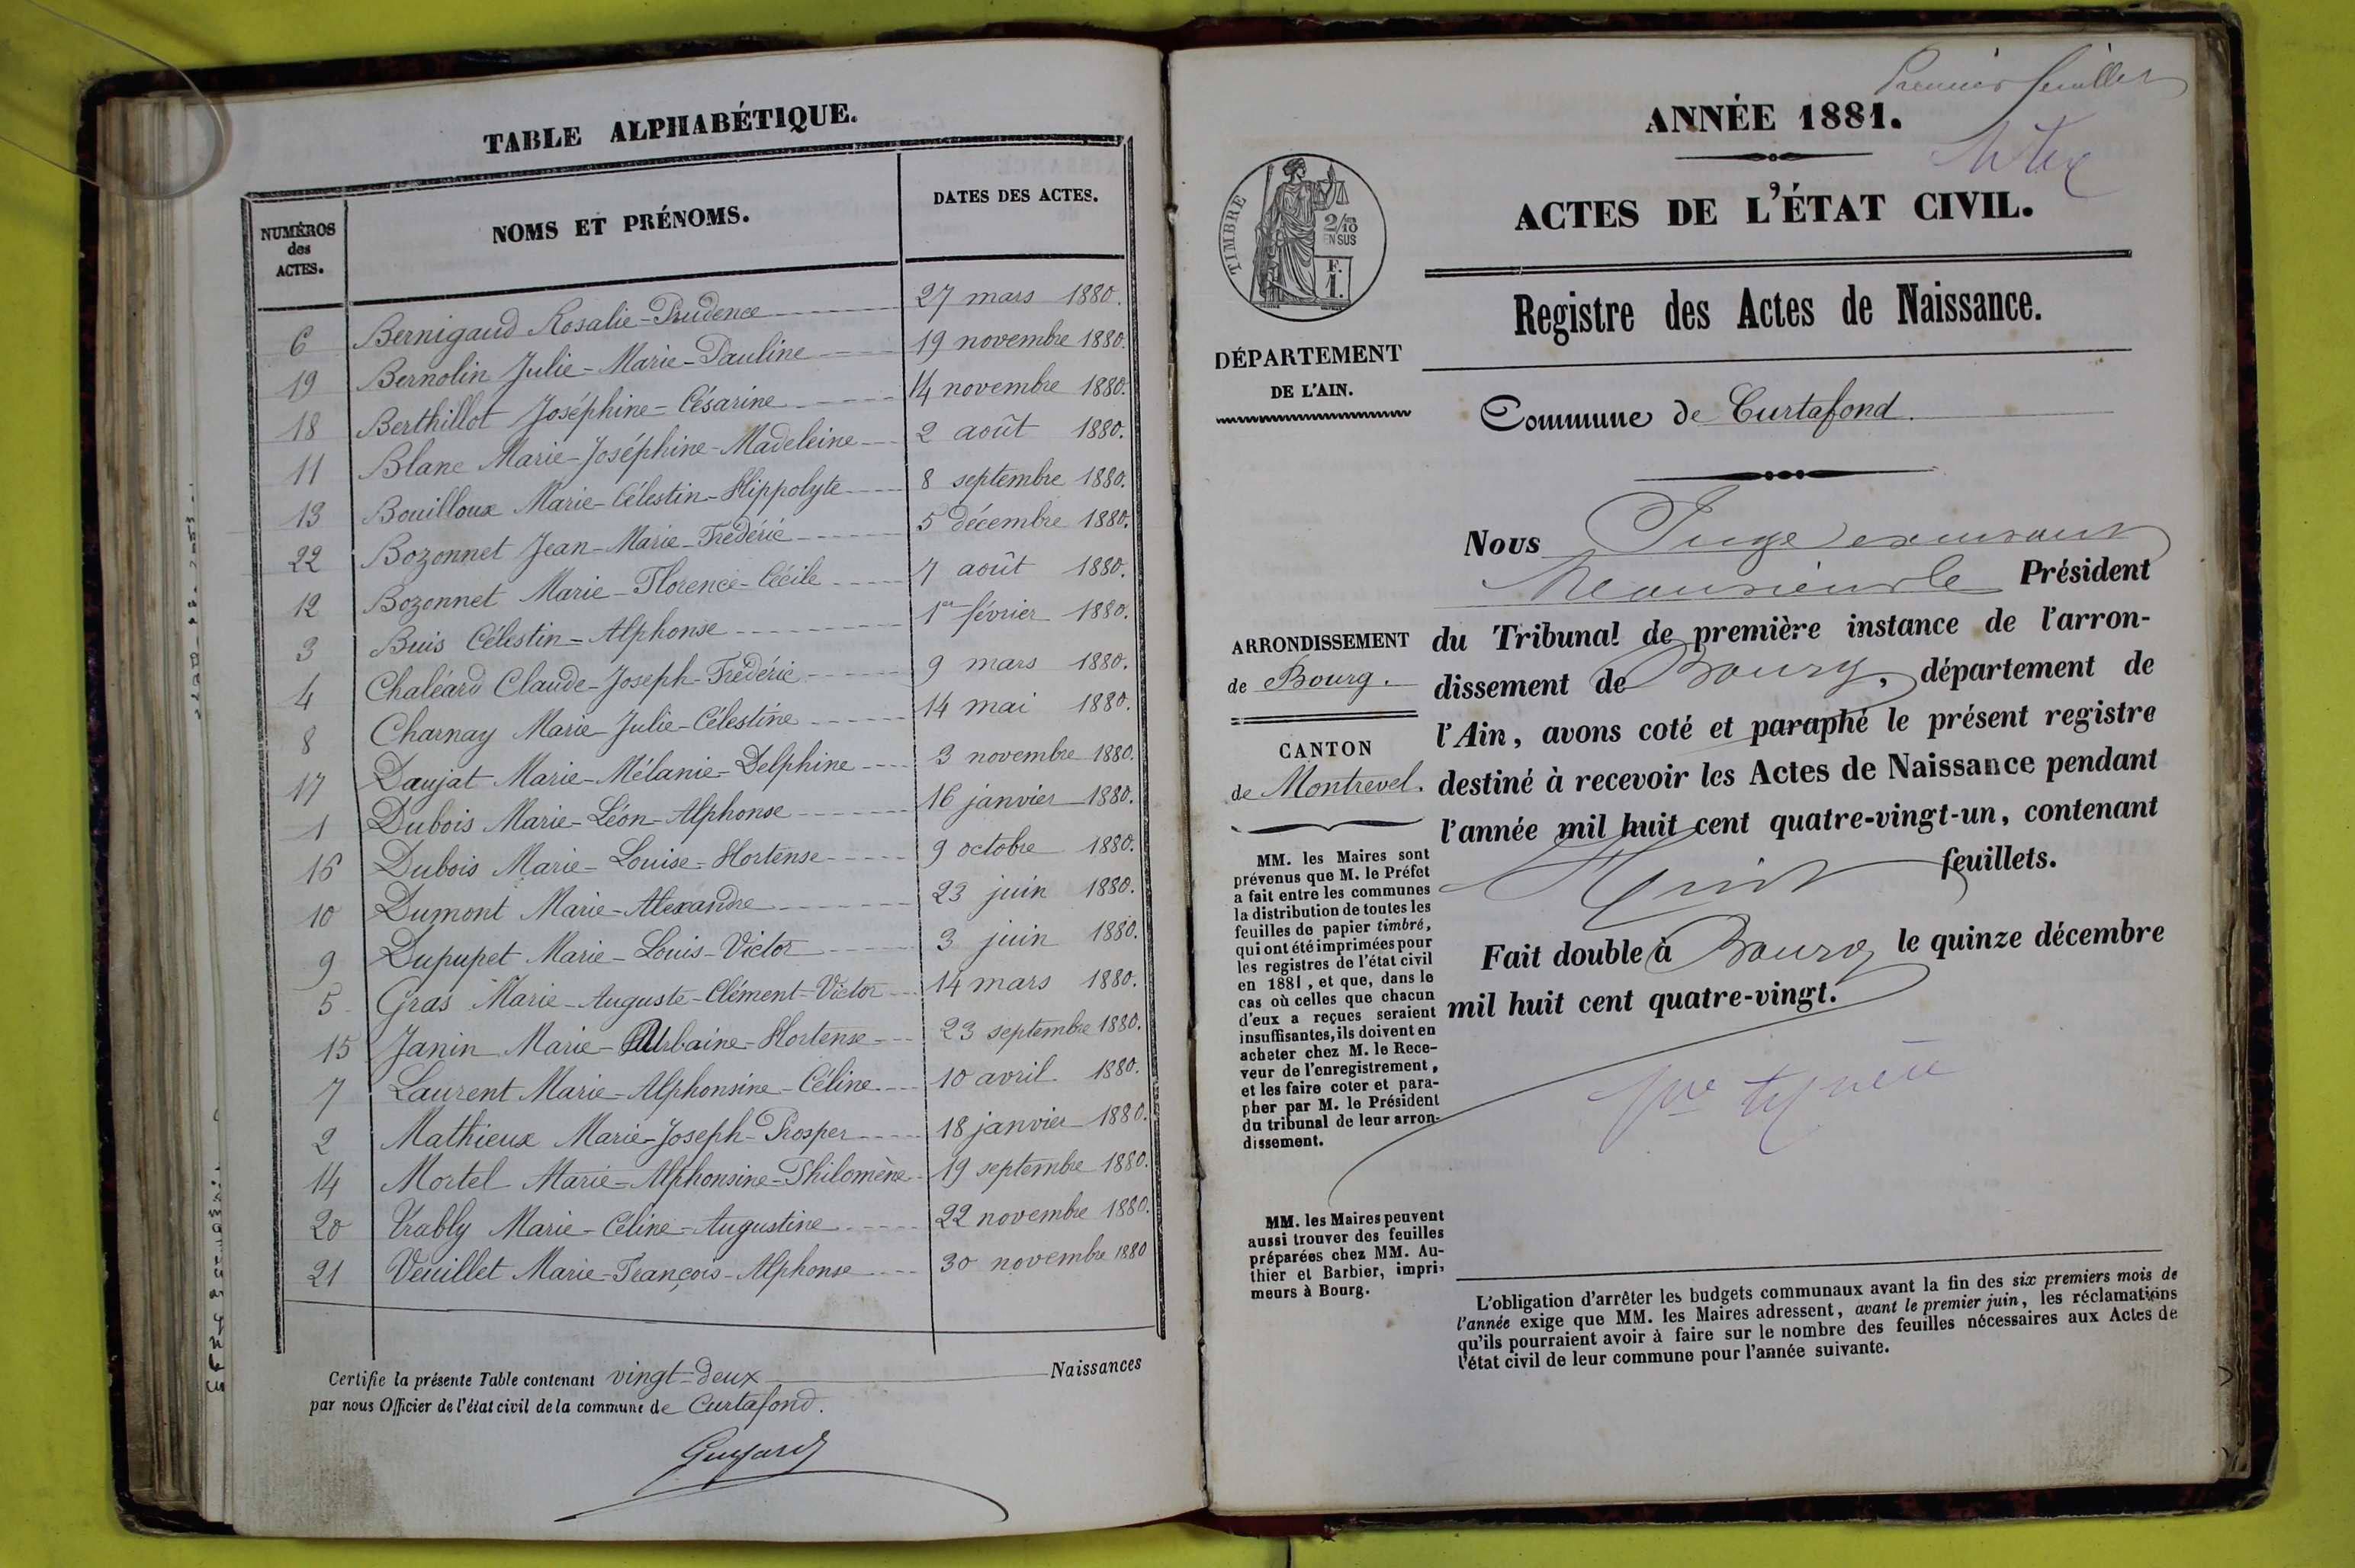 TABLE ALPHABÉTIQUE.
NUMÉROS des ACTES.
NOMS ET PRÉNOMS.
DATES DES ACTES.
6 Bernigaud Rosalie-Prudence 27 mars 1880.
19 Bernolin Julie-Marie-Pauline 19 novembre 1880.
18 Berthillot Joséphine-Césarine 14 novembre 1880.
11 Blanc Marie-Joséphine-Madeleine 2 août 1880.
13 Bouilloux Marie-Célestin-Hippolyte 8 septembre 1880.
22 Bozonnet Jean-Marie-Frédéric 5 décembre 1880.
12 Bozonnet Marie-Florence-Cécile 7 août 1880.
3 Buis Célestin-Alphonse 1er février 1880.
4 Chaléard Claude-Joseph-Frédéric 9 mars 1880.
8 Charnay Marie-Julie-Célestine 14 mai 1880.
17 Daujat Marie-Mélanie-Delphine 3 novembre 1880.
1 Dubois Marie-Léon-Alphonse 16 janvier 1880.
16 Dubois Marie-Louise-Hortense 9 octobre 1880.
10 Dumont Marie-Alexandre 23 juin 1880.
9 Dupupet Marie-Louis-Victor 3 juin 1880.
5 Gras Marie-Auguste-Clément-Victor 14 mars 1880.
15 Janin Marie-Urbaine-Hortense 23 septembre 1880.
7 Laurent Marie-Alphonsine-Céline 10 avril 1880.
2 Mathieux Marie-Joseph-Prosper 18 janvier 1880.
14 Mortel Marie-Alphonsine-Philomène 19 septembre 1880.
20 Vrably Marie-Céline-Augustine 22 novembre 1880.
21 Veuillet Marie-François-Alphonse 30 novembre 1880
Certifie la présente Table contenant vingt-deux Naissances
par nous Officier de l'état civil de la commune de Curtafond.
Guyard
Premier feuillet
ANNÉE 1881.
ACTES DE L'ÉTAT CIVIL.
TIMBRE
2/10
EN SUS
F.
1.
Registre des Actes de Naissance.
DÉPARTEMENT
DE L'AIN.
Commune de Curtafond.
Nous Juge
Monsieur le Président
du Tribunal de première instance de l'arron-
dissement de Bourg, département de
l'Ain, avons coté et paraphé le présent registre
destiné à recevoir les Actes de Naissance pendant
l'année mil huit cent quatre-vingt-un, contenant
feuillets.
Fait double à Bourg le quinze décembre
mil huit cent quatre-vingt.
ARRONDISSEMENT
de Bourg.
CANTON
de Montrevel.
MM. les Maires sont
prévenus que M. le Préfet
a fait entre les communes
la distribution de toutes les
feuilles de papier timbré,
qui ont été imprimées pour
les registres de l'état civil
en 1881, et que, dans le
cas où celles que chacun
d'eux a reçues seraient
insuffisantes, ils doivent en
acheter chez M. le Rece-
veur de l'enregistrement,
et les faire coter et para-
pher par M. le Président
du tribunal de leur arron-
dissement.
MM. les Maires peuvent
aussi trouver des feuilles
préparées chez MM. Au-
thier et Barbier, impri-
meurs à Bourg.
L'obligation d'arrêter les budgets communaux avant la fin des six premiers mois de
l'année exige que MM. les Maires adressent, avant le premier juin, les réclamations
qu'ils pourraient avoir à faire sur le nombre des feuilles nécessaires aux Actes de
l'état civil de leur commune pour l'année suivante.